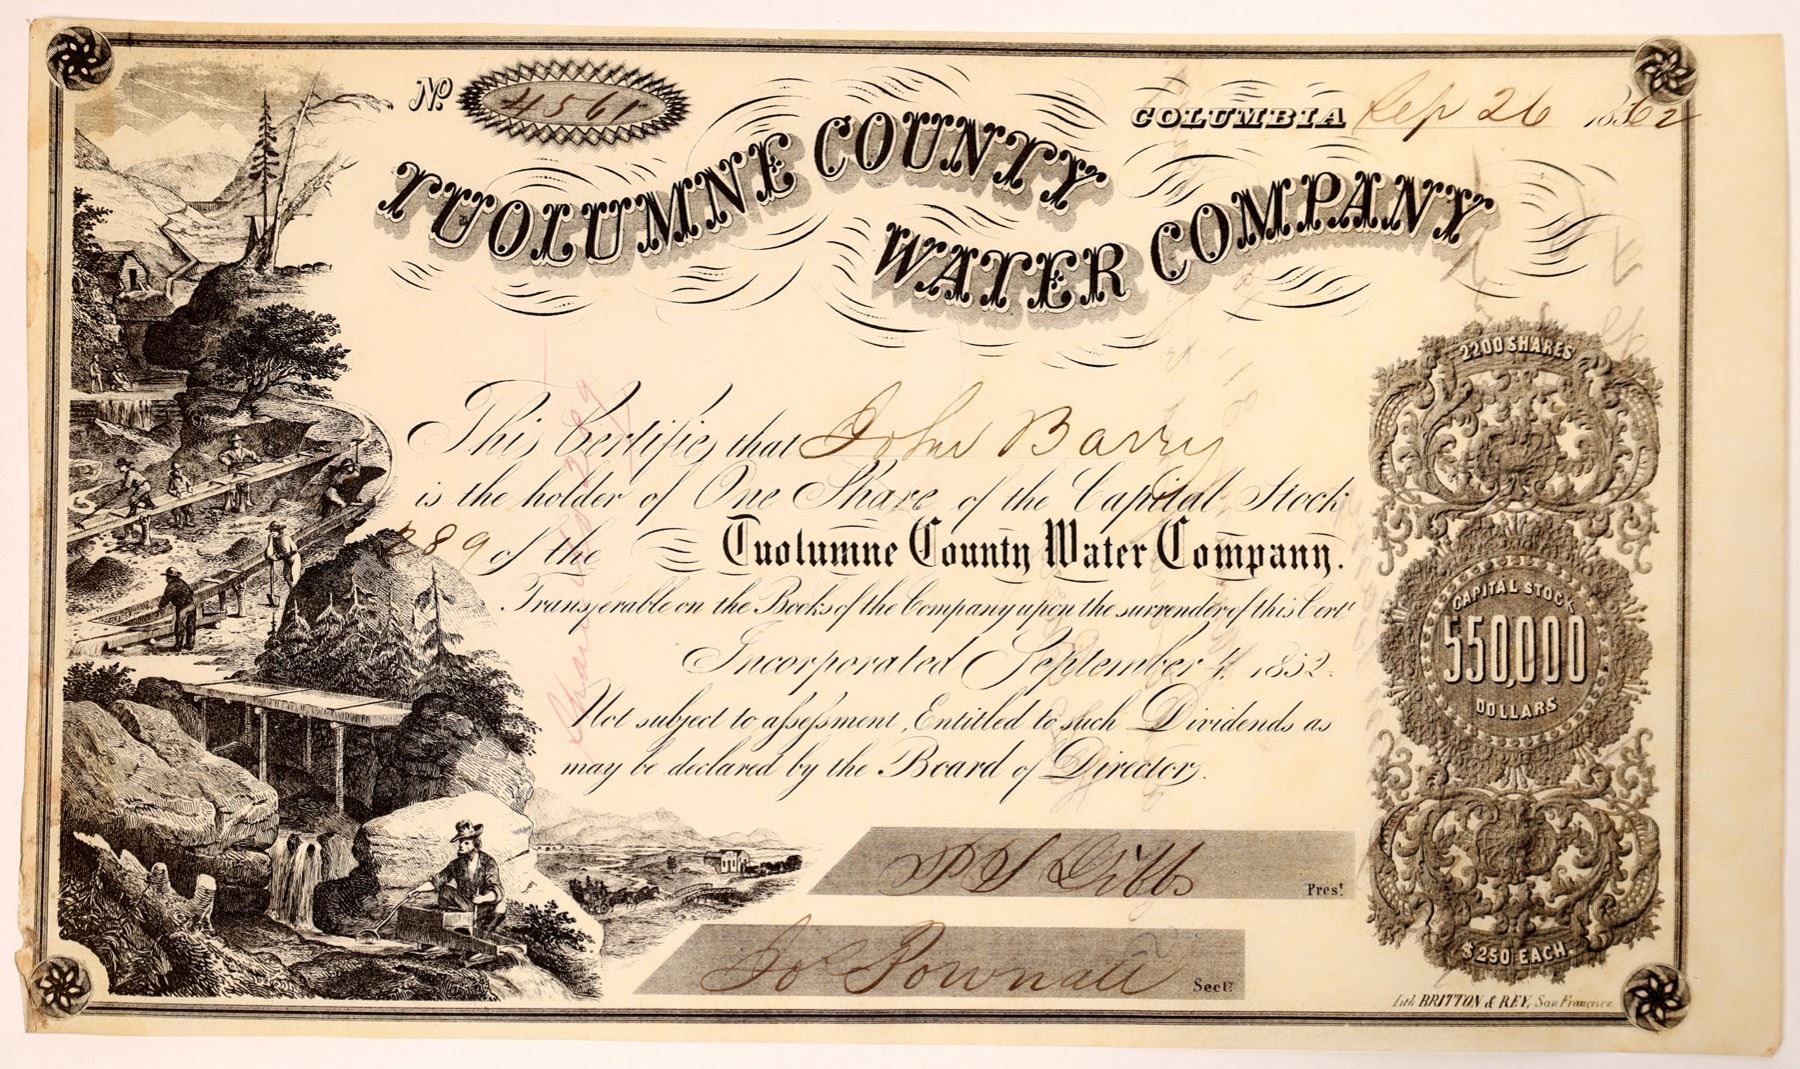 No 4561
COLUMBIA Sep 26 1862
TUOLUMNE COUNTY
WATER COMPANY
This Certifies that John Barry
is the holder of One Share of the Capital Stock
289 of the Tuolumne County Water Company.
Transferable on the Books of the Company upon the surrender of this Cert
Incorporated September 4, 1852.
Not subject to assessment, Entitled to such Dividends as
may be declared by the Board of Directors.
2200 SHARES
CAPITAL STOCK
550,000
DOLLARS
$250 EACH.
Dibbs Prest
Jos Pownall Secty
Lith BRITTON & REY, San Francisco.